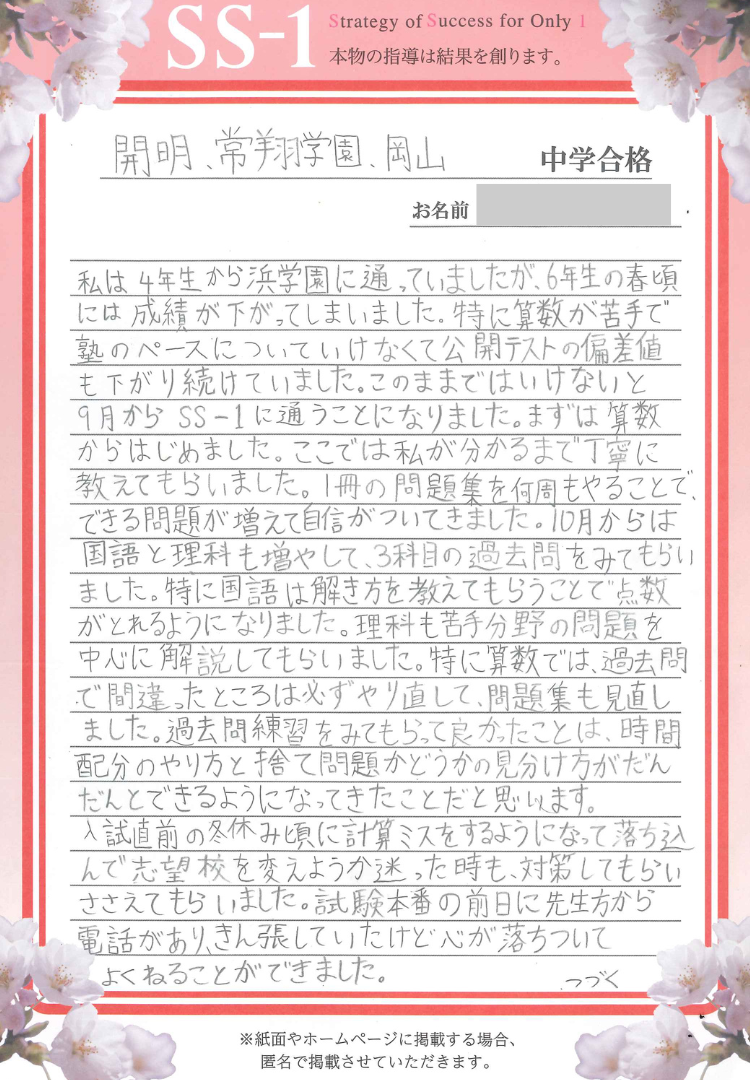 SS-1
Strategy of Success for Only 1
本物の指導は結果を創ります。
開明、常翔学園、岡山 中学合格
お名前
私は4年生から浜学園に通っていましたが、6年生の春頃
には成績が下がってしまいました。特に算数が苦手で
塾のペースについていけなくて公開テストの偏差値
も下がり続けていました。このままではいけないと
9月からSS-1に通うことになりました。まずは算数
からはじめました。ここでは私が分かるまで丁寧に
教えてもらいました。1冊の問題集を何周もやることで、
できる問題が増えて自信がついてきました。10月からは
国語と理科も増やして、3科目の過去問をみてもらい
ました。特に国語は解き方を教えてもらうことで点数
がとれるようになりました。理科も苦手分野の問題を
中心に解説してもらいました。特に算数では、過去問
で間違ったところは必ずやり直して、問題集も見直し
ました。過去問練習をみてもらって良かったことは、時間
配分のやり方と捨て問題かどうかの見分け方がだん
だんとできるようになってきたことだと思います。
入試直前の冬休み頃に計算ミスをするようになって落ち込
んで志望校を変えようか迷った時も、対策してもらい
ささえてもらいました。試験本番の前日に先生方から
電話があり、きん張していたけど心が落ちついて
よくねることができました。 つづく
※紙面やホームページに掲載する場合、
匿名で掲載させていただきます。